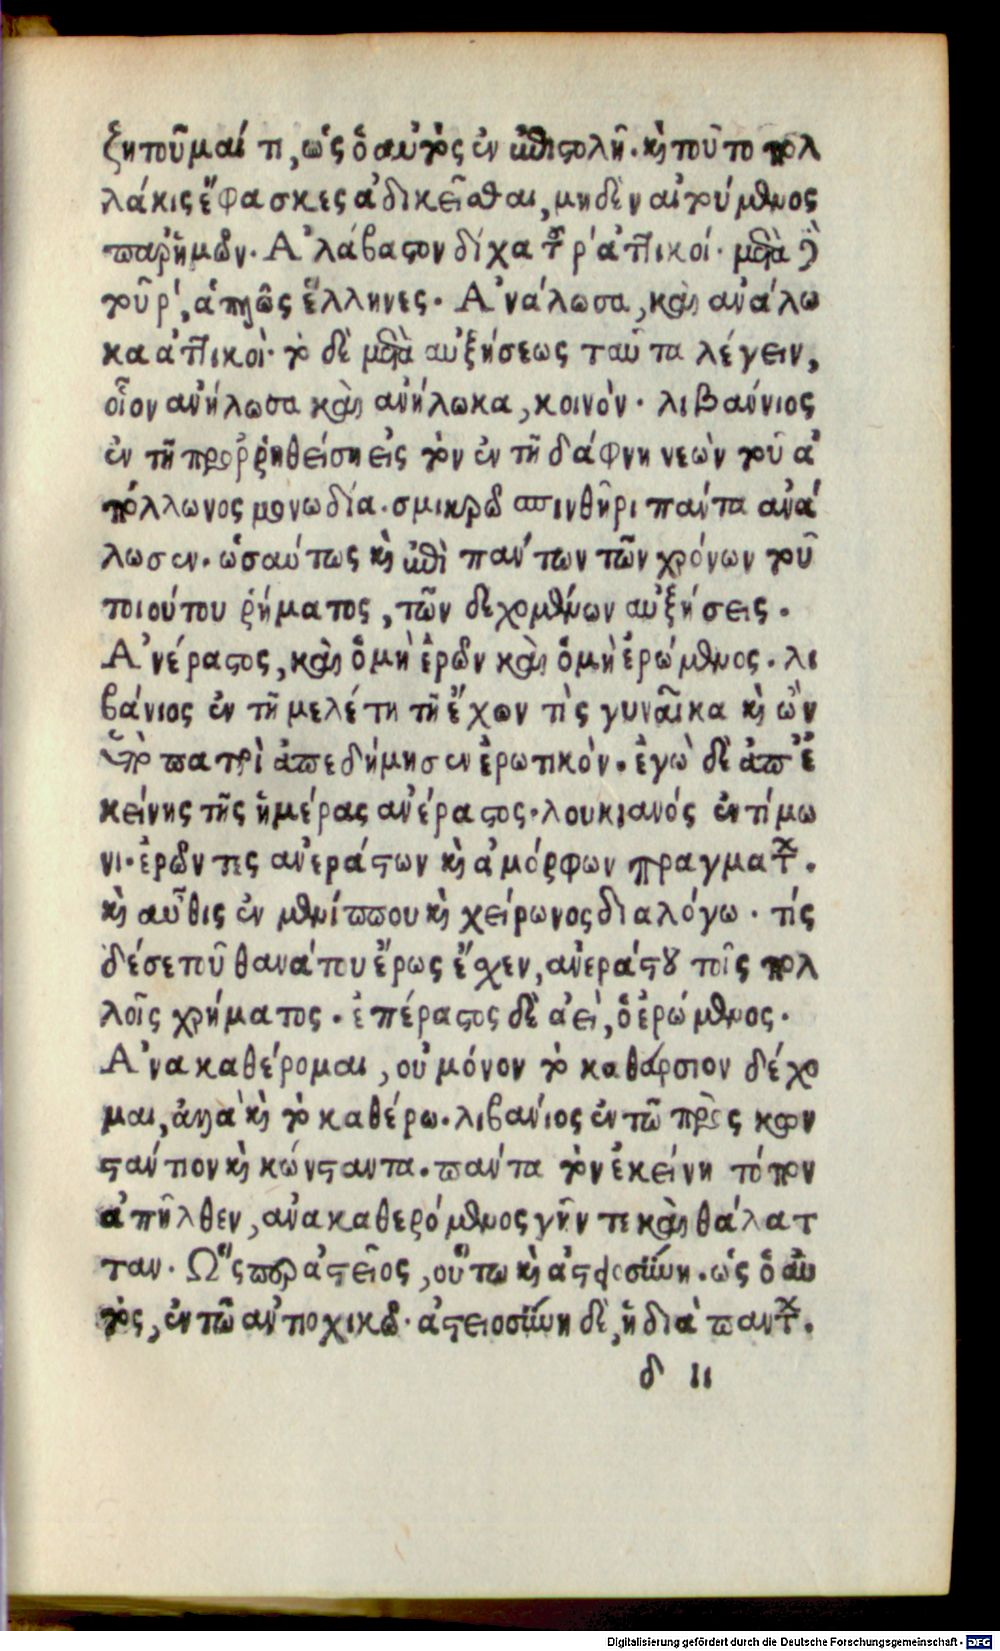 ζητοῦμαί τι, ὡς ὁ αὐτὸς ἐν ἐπιστολῇ. καὶ τοῦτο πολ
λάκις ἔφασκες ἀδικεῖσθαι, μηδὲν αἰτούμενος
παρ' ἡμῶν. Ἀλάβαστον δίχα τοῦ ρ' ἀττικοί. μετὰ δὲ
τοῦ ρ', ἁπλῶς ἕλληνες. Ἀνάλωσα, καὶ ἀνάλω
κα ἀττικοὶ. τὸ δὲ μετὰ αὐξήσεως ταῦτα λέγειν,
οἷον ἀνήλωσα καὶ ἀνήλωκα, κοινὸν. λιβάνιος
ἐν τῇ προῤῥηθείσῃ εἰς τὸν ἐν τῇ δάφνῃ νεὼν τοῦ ἀ
πόλλωνος μονωδία. σμικρῶ σπινθῆρι πάντα ἀνά
λωσεν. ὡσαύτως καὶ ἐπὶ πάντων τῶν χρόνων τοῦ
τοιούτου ῥήματος, τῶν δεχομένων αὐξήσεις.
Ἀνέραστος, καὶ ὁ μὴ ἐρῶν καὶ ὁ μὴ ἐρώμενος. λι
βάνιος ἐν τῇ μελέτη τῇ ἔχων τὶς γυναῖκα καὶ ὢν
πατρὶ ἀπεδήμησεν ἐρωτικὸν. ἐγὼ δὲ ἀπ' ἐ
κείνης τῆς ἡμέρας ἀνέραστος. λουκιανός ἐν τίμω
νι. ἐρῶν τις ἀνεράστων καὶ ἀμόρφων πραγμάτων.
καὶ αὖθις ἐν μενίππου καὶ χείρωνος διαλόγω. τίς
δέ σε τοῦ θανάτου ἔρως ἔσχεν, ἀνεράστου τοῖς πολ
λοῖς χρήματος. ἐπέραστος δὲ ἀεὶ, ὁ ἐρώμενος.
Ἀνακαθέρομαι, οὐ μόνον τὸ καθάρσιον δέχο
μαι, ἀλλὰ καὶ τὸ καθέρω. λιβανίος ἐν τῶ πρὸς κων
στάντιον καὶ κώνσταντα. πάντα τὸν ἐκείνη τόπον
ἀπῆλθεν, ἀνακαθερόμενος γῆν τε καὶ θάλατ
ταν. Ὥσπερ ἀστεῖος, οὕτω καὶ ἀστειοσύνη. ὡς ὁ αὐ
τὸς, ἐν τῶ ἀντιοχικῶ. ἀστειοσύνη δὲ, ἡ διὰ πάντων.
δ ιι
Digitalisierung gefördert durch die Deutsche Forschungsgemeinschaft - DFG